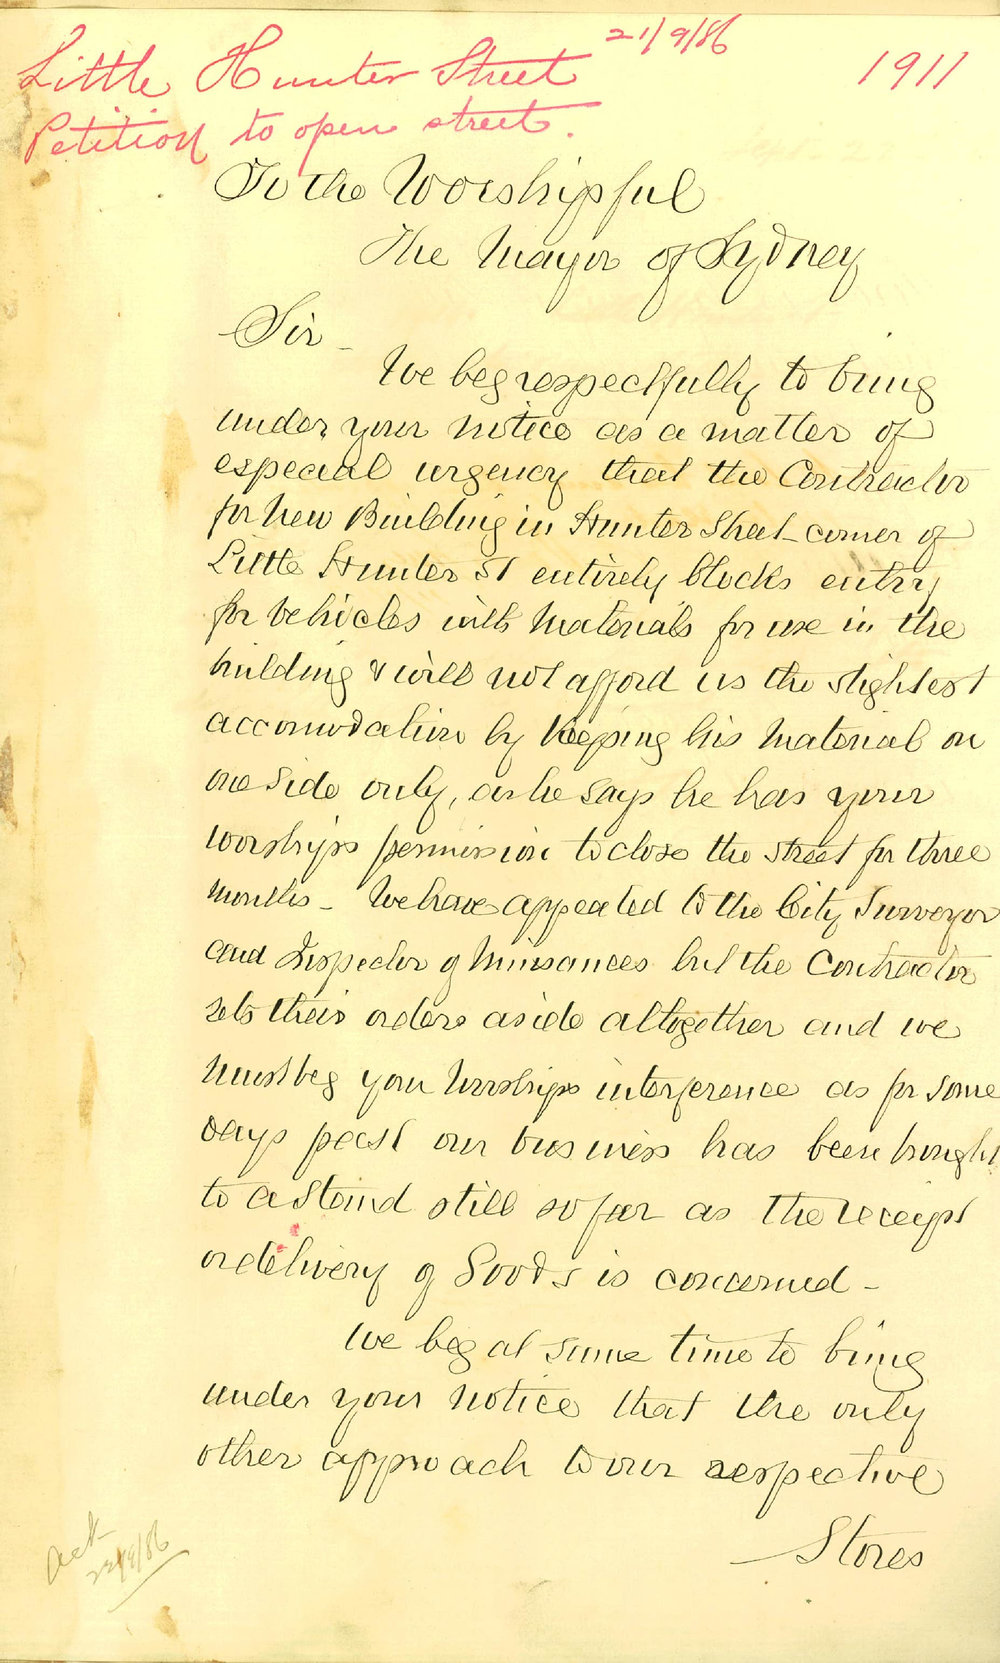 21/9/86
Little Hunter Street
1911
Petition to open street.
To the Worshipful
The Mayor of Sydney
Sir -
We beg respectfully to bring
under your notice as a matter of
especial urgency that the Contractor
for New Building in Hunter Street - corner of
Little Hunter St entirely blocks entry
for Vehicles with Materials for use in the
building & will not afford us the slightest
accomodation by keeping his Material on
one side only, as he says he has your
Worships permission to close the street for three
months - We have appealed to the City Surveyor
and Inspector of Nuisances but the Contractor
sets their orders aside altogether and we
must beg your Worships interference as for some
days past our business has been brought
to a stand still so far as the receipt
or delivery of Goods is concerned -
We beg at same time to bring
under your notice that the only
other approach to our respective
Stores
Ack
22/9/86